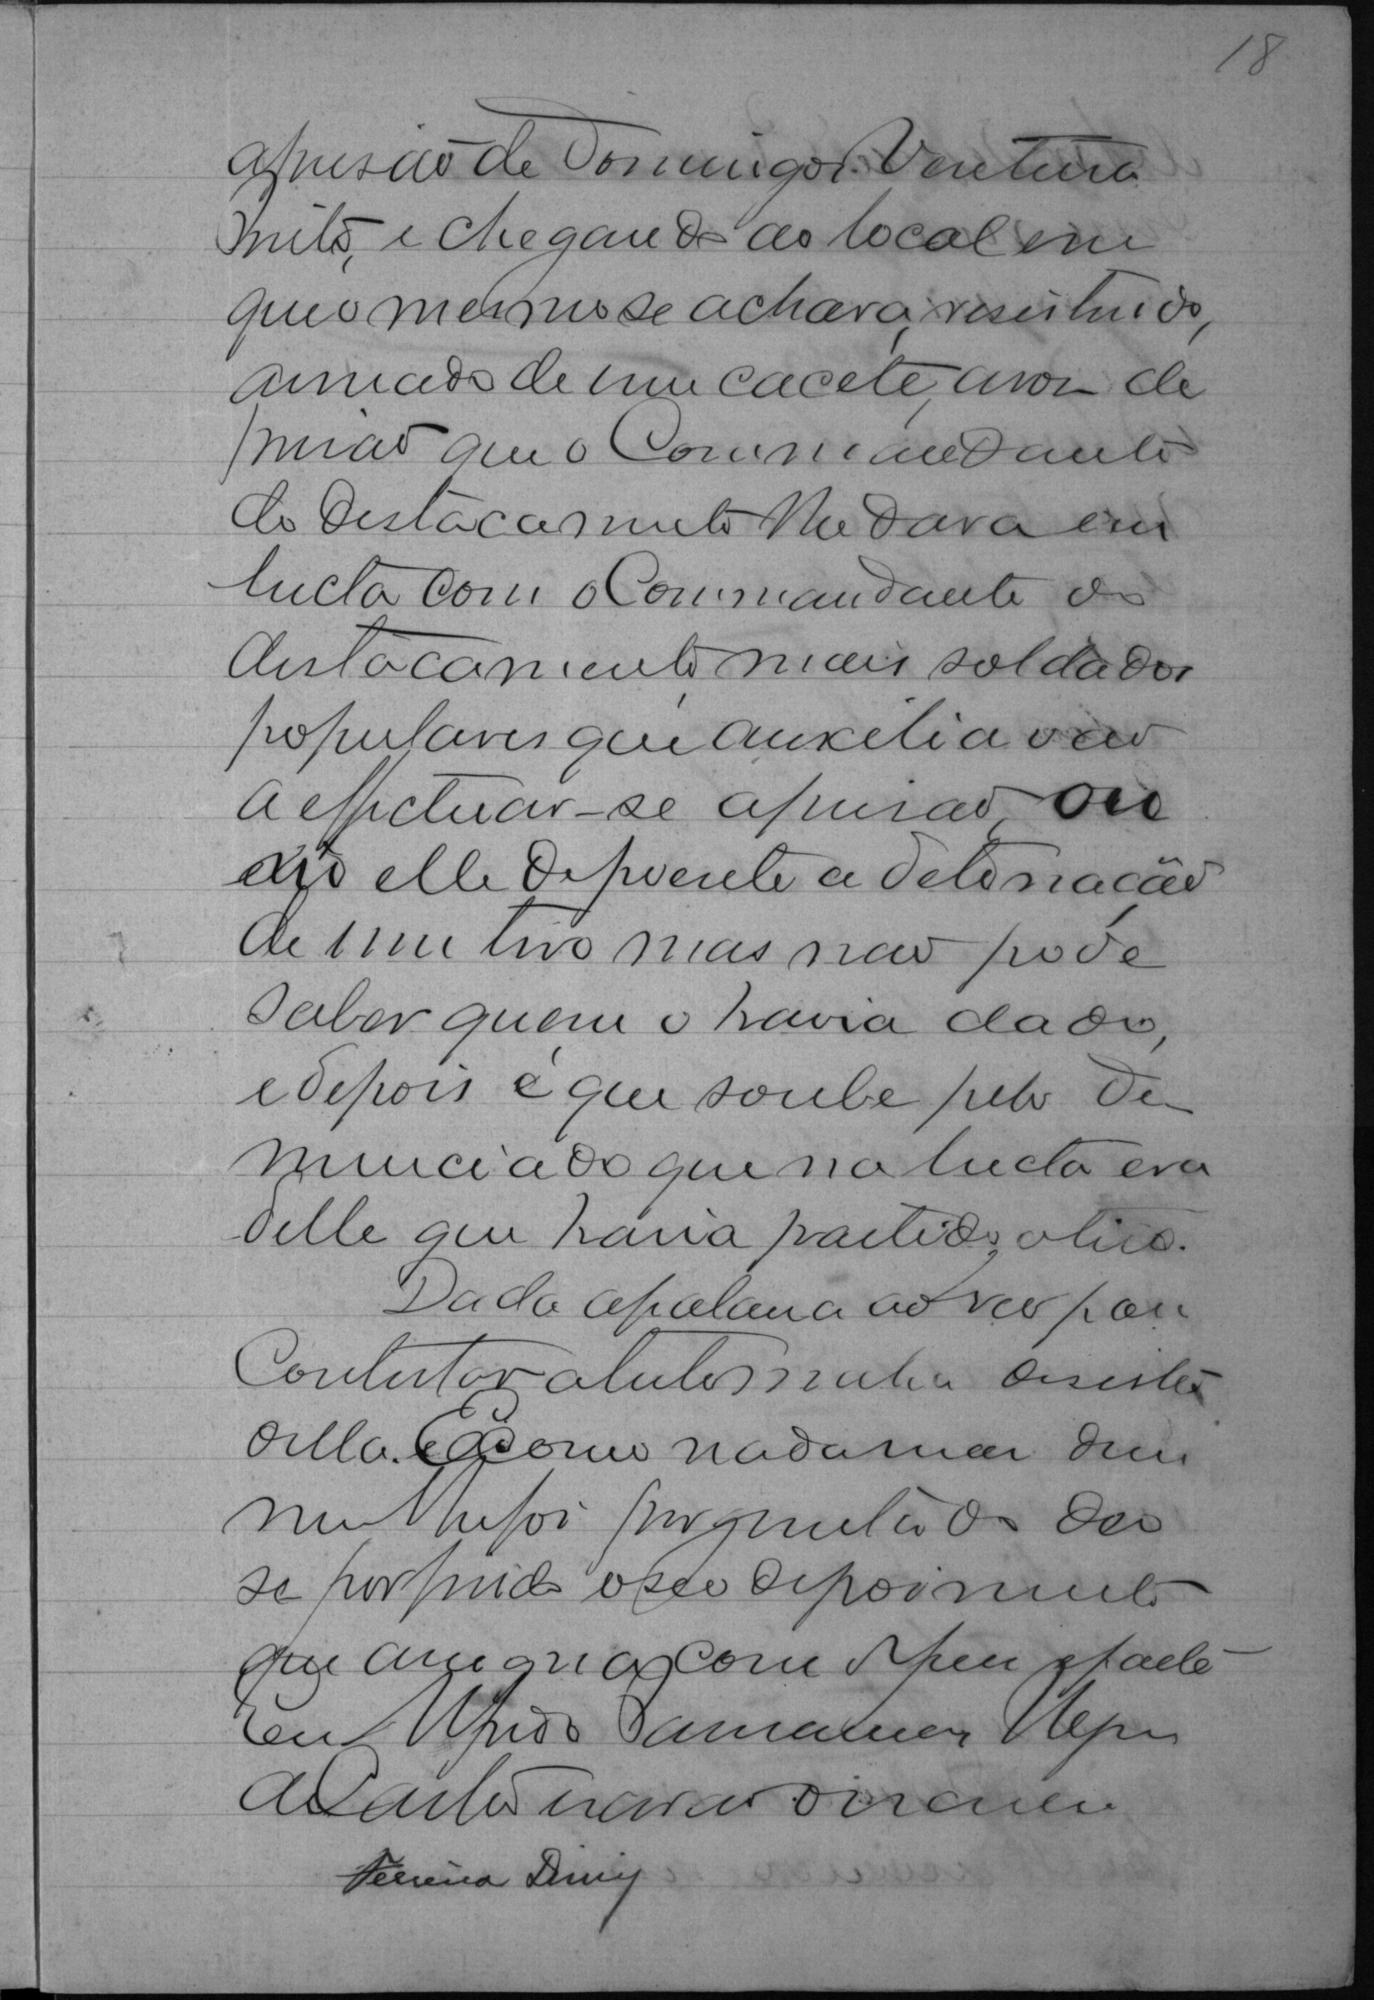 18
a prisão de Domingos Ventura
e chegando ao local em
que o mesmo se achava, resistindo,
armado de um cacete, a voz de
prisão que o Commandante
do destacamento lhe dava em
lucta com o Commandante do
destacamento mais soldados
populares que auxiliavão
a effectuar-se a prisão, ou
vio elle depoente a detonação
de um tiro mas não pode
saber quem o havia dado,
e depois é que soube pelo de
nunciado que na lucta era
delle que havia partido o tiro.
Dada a palavra ao reo para
contestar a testemunha desistio
della. E como nada mais disse
nem lhe foi perguntado deu
se por findo o seo depoimento
que assigna com
Eu Alfredo
escrivão